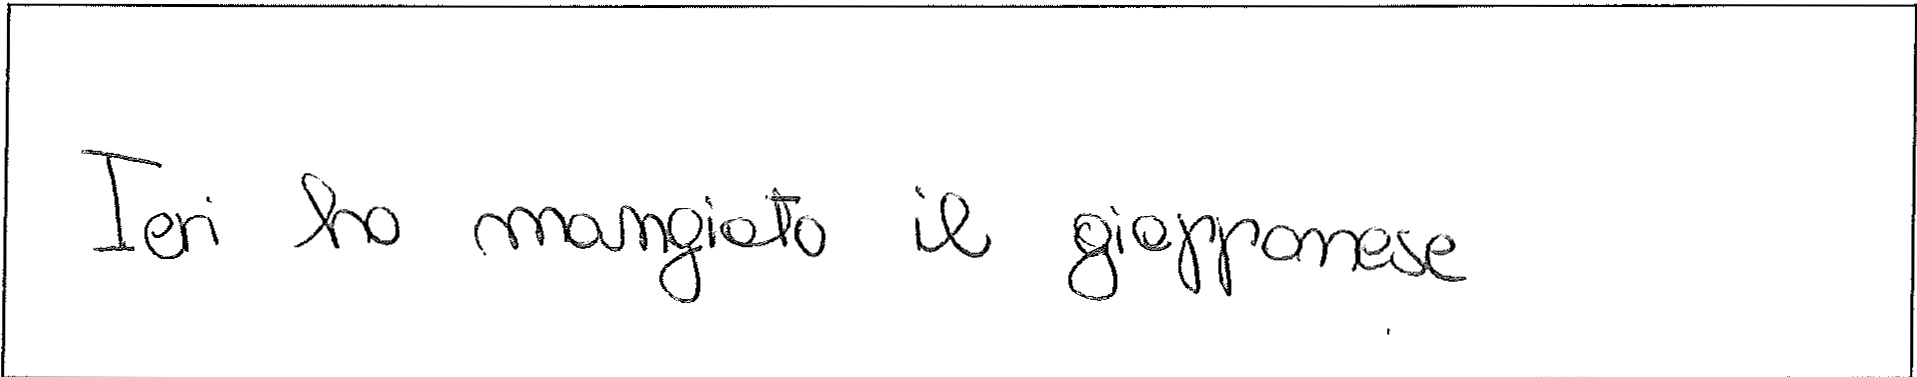 Ieri ho mangiato il giapponese